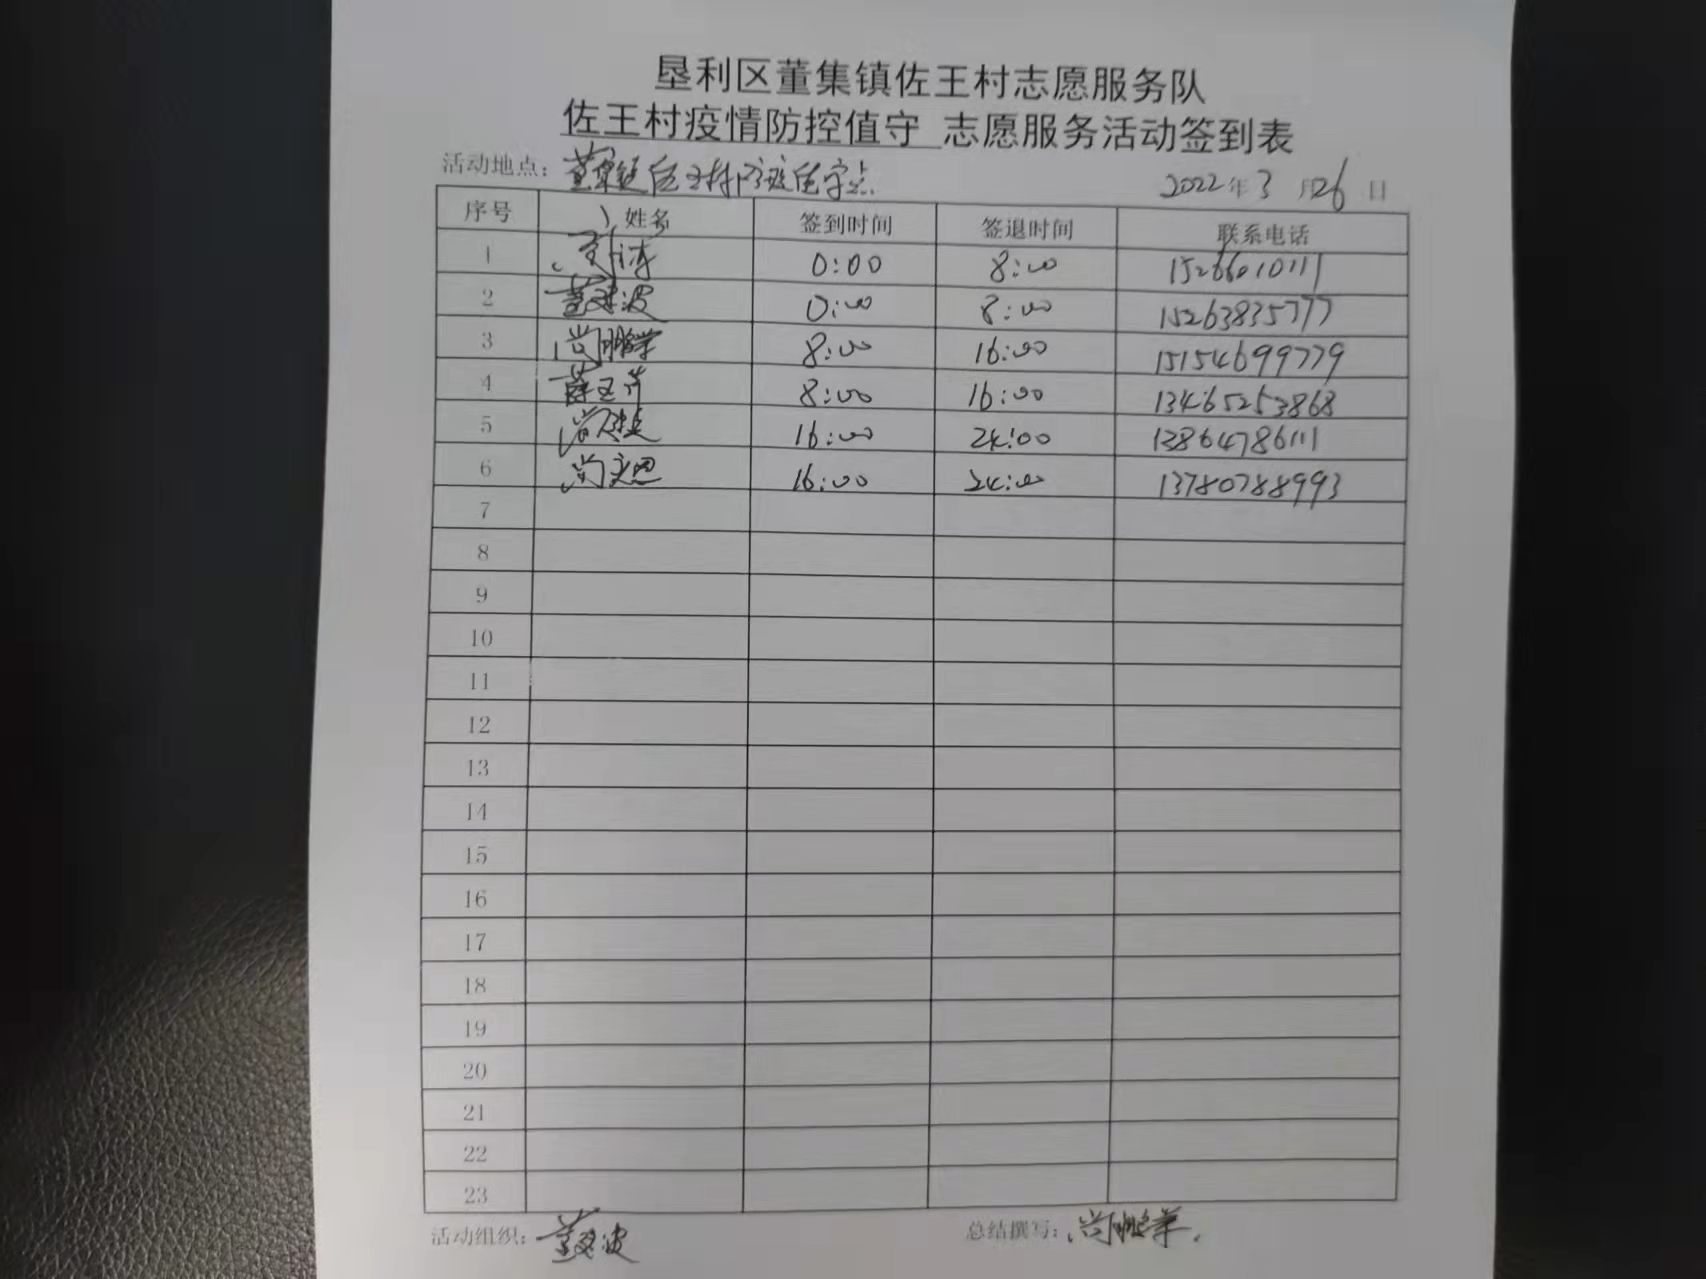 垦利区董集镇佐王村志愿服务队
佐王村疫情防控值守 志愿服务活动签到表
活动地点：董集镇佐王村防疫值守点 2022年3月26日
序号 姓名 签到时间 签退时间 联系电话
1 0:00 8:00 15266010111
2 董建波 0:00 8:00 15263835777
3 尚鹏 8:00 16:00 15154699779
4 薛玉芹 8:00 16:00 13465253868
5 尚 16:00 24:00 13864786111
6 尚文恩 16:00 24:00 13780788993
7
8
9
10
11
12
13
14
15
16
17
18
19
20
21
22
23
活动组织：董建波 总结撰写：尚鹏